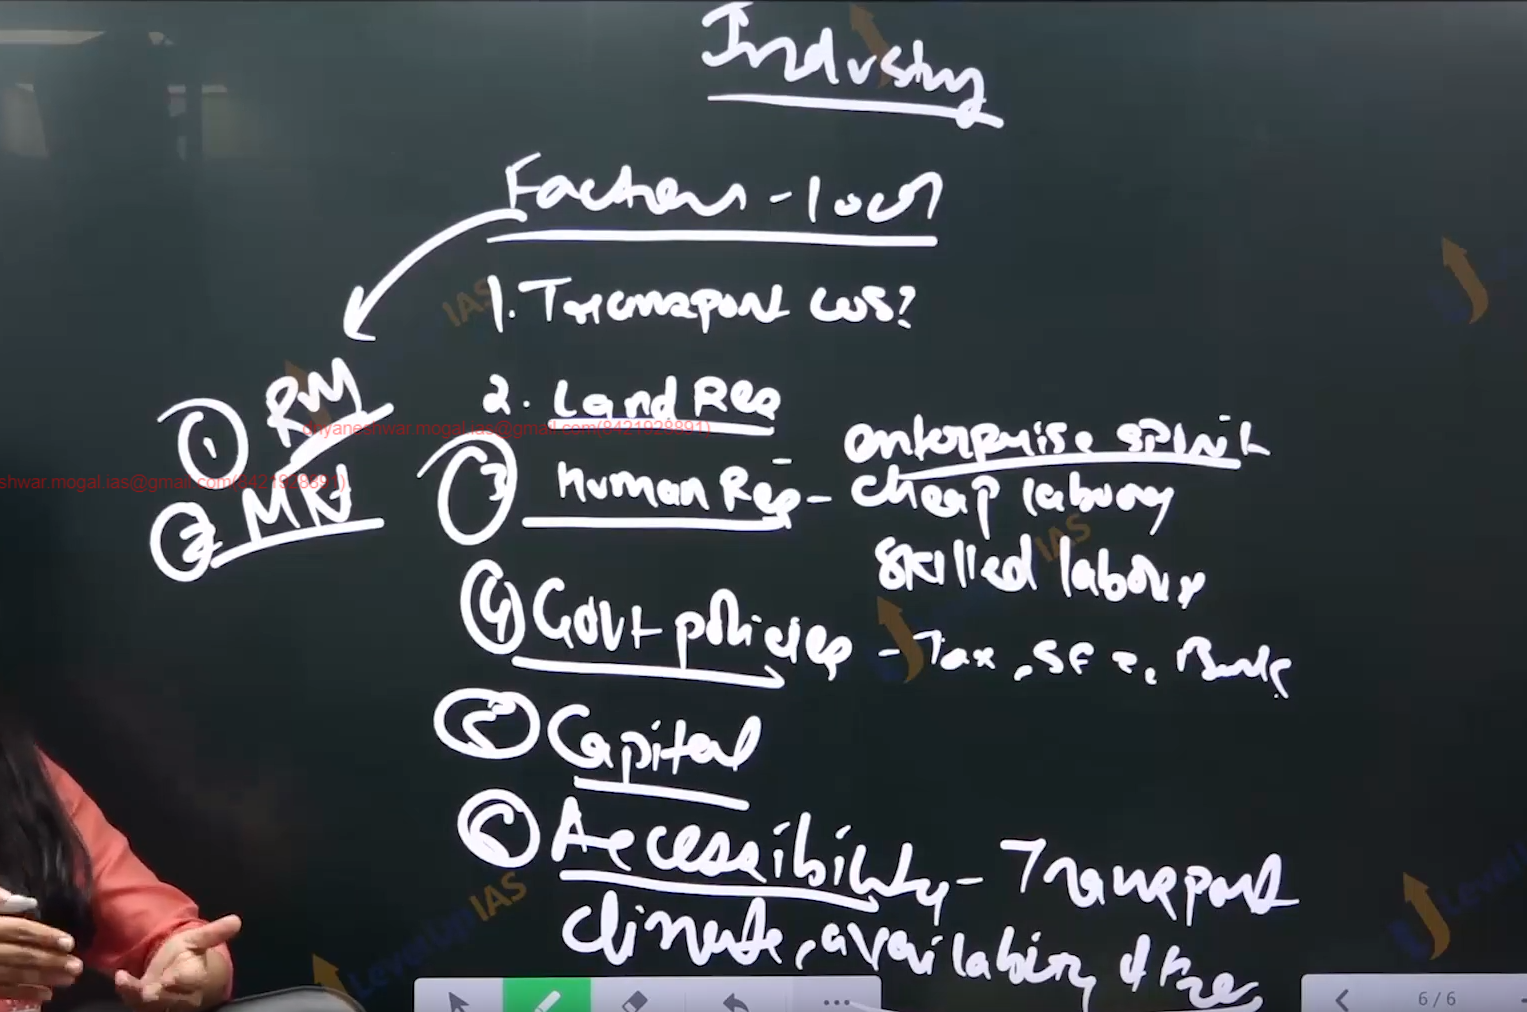 Industry
Factors - locn
1. Transport cos?
① RM
② MKt
2. Land Res
③ Human Res - enterprise spirit
cheap labour
skilled labour
④ Govt policies - Tax, SEZ, Bank
⑤ Capital
⑥ Accessibility - Transport
climate, availability of
dnyaneshwar.mogal.ias@gmail.com(8421928891)
shwar.mogal.ias@gmail.com(8421928891)
IAS
IAS
LevelUp IAS
LevelUp
6 / 6